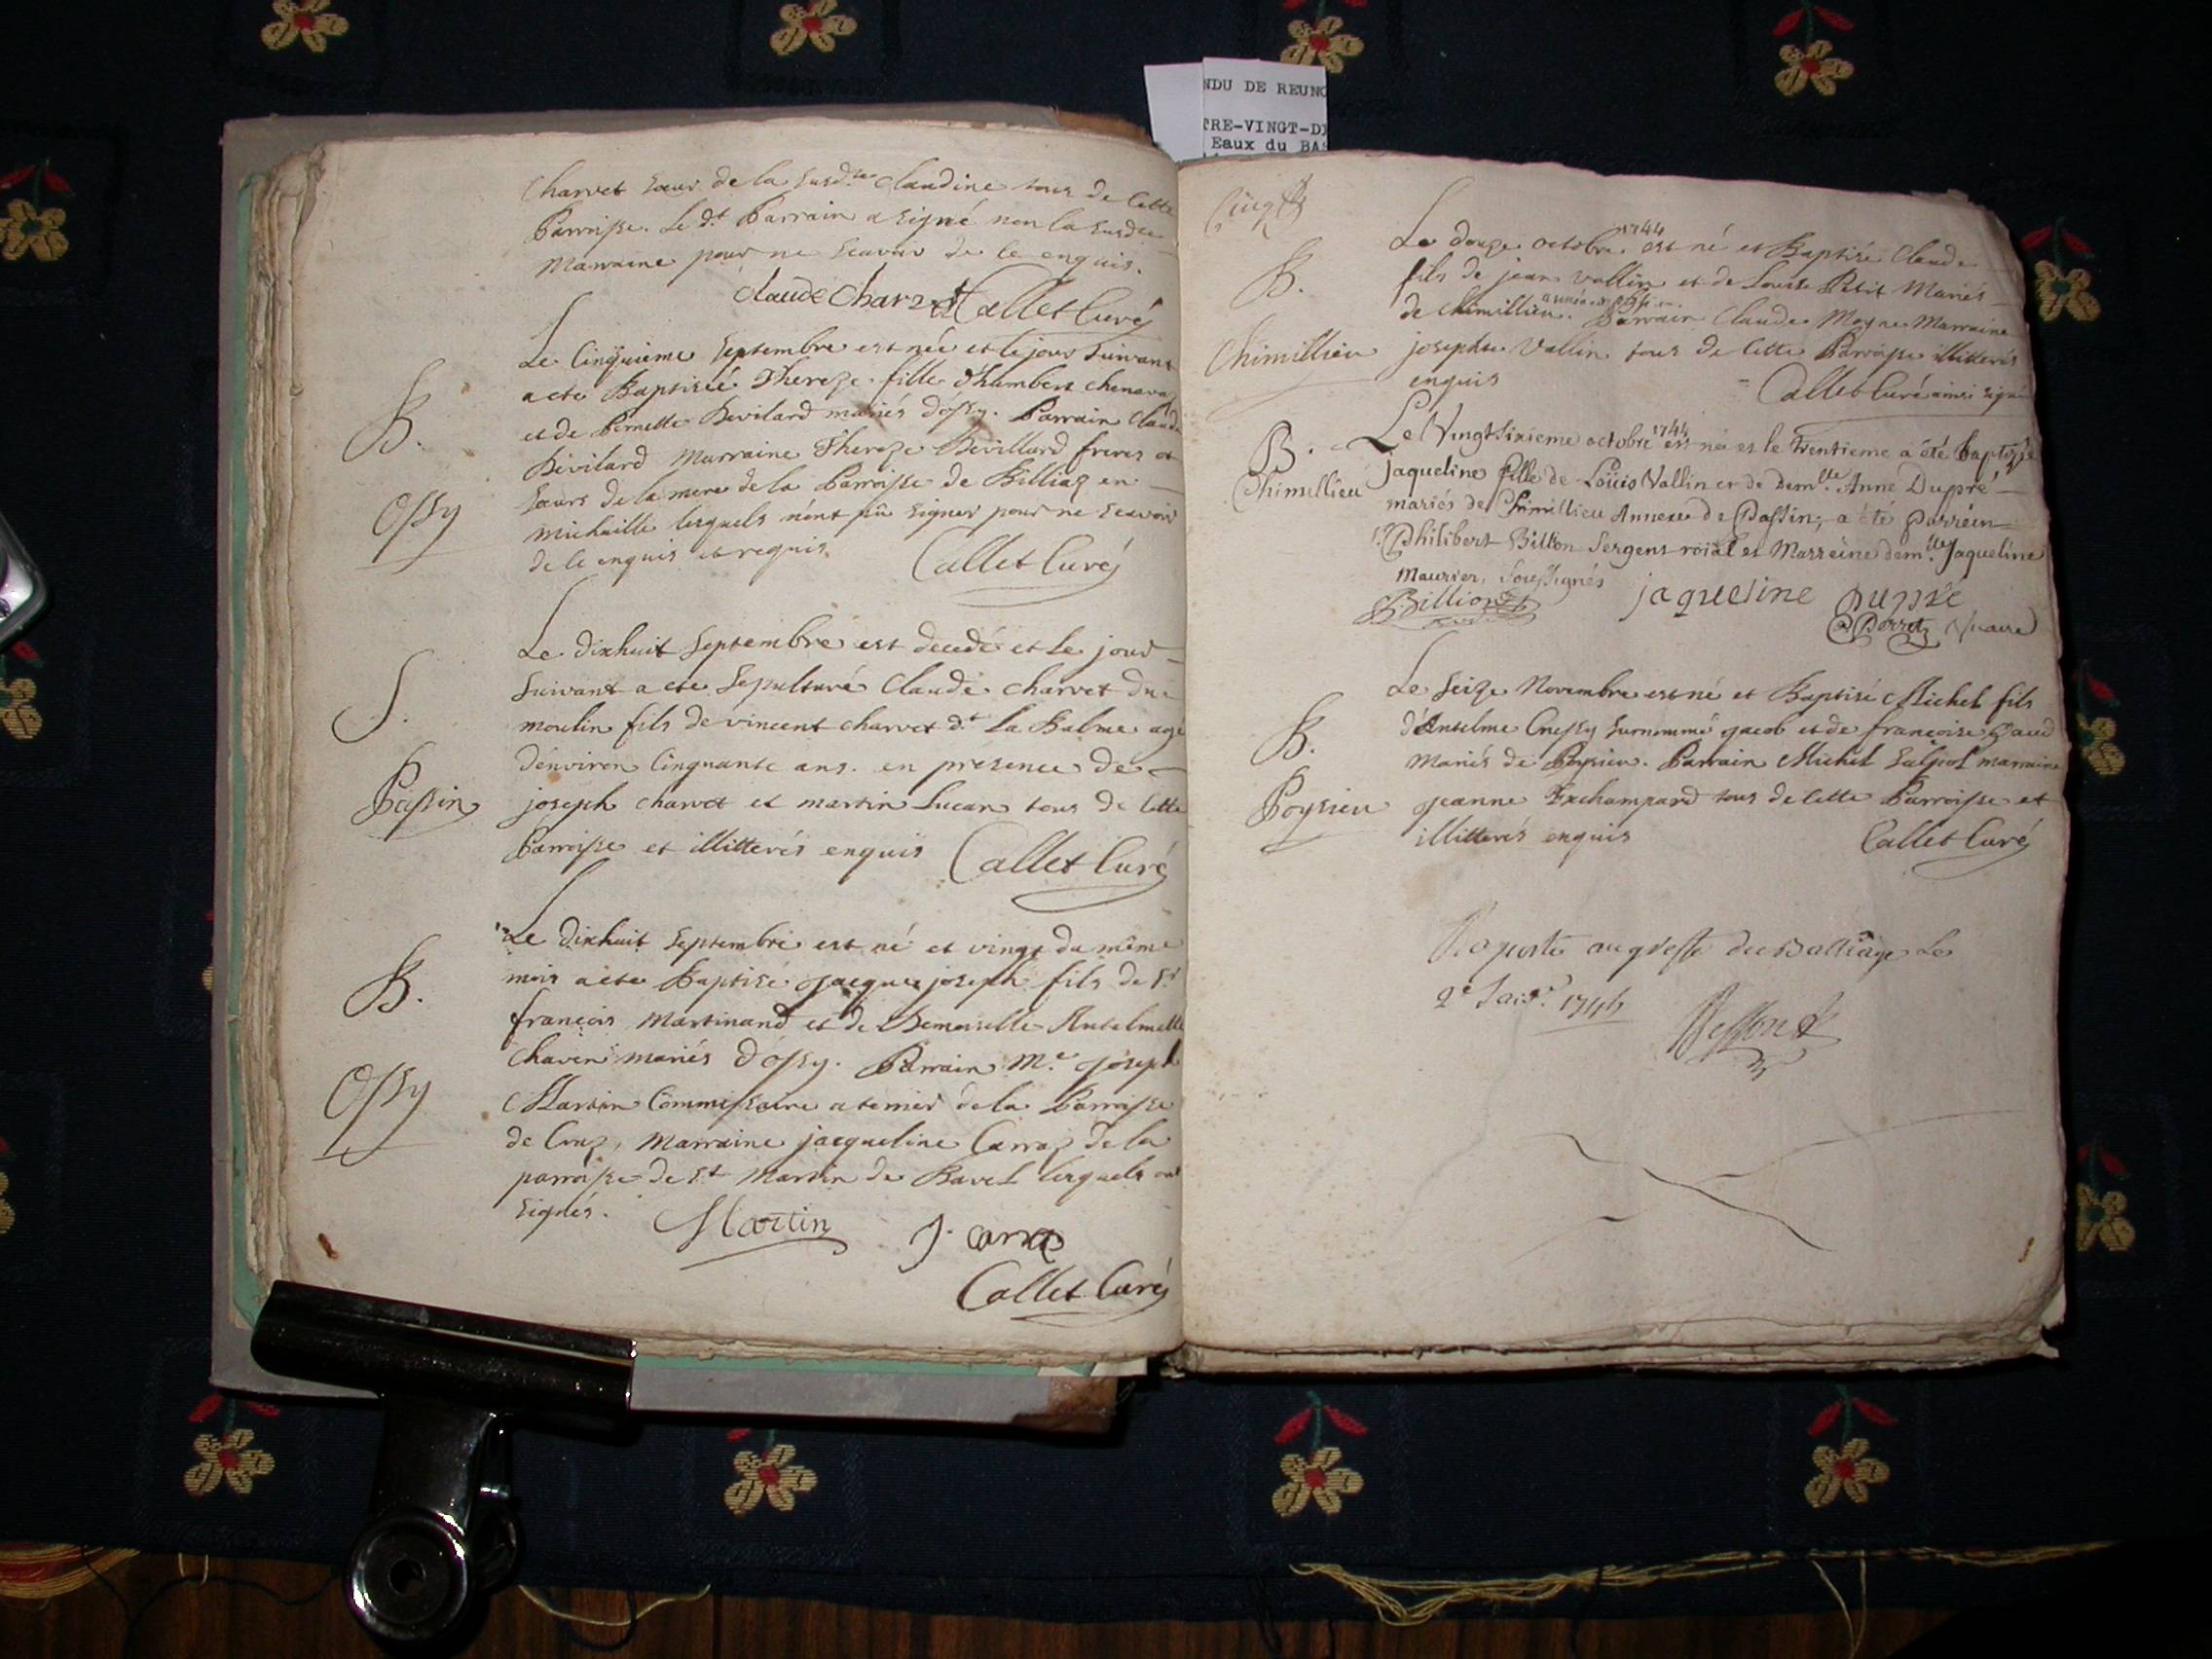 NDU DE REUNO
TRE-VINGT-DI
Eaux du BAS
Charvet sœur de la susd.te Claudine tous de cette
Parroisse. Le d.t Parrain a signé non la susd.te
Marraine pour ne scavoir de ce enquis.
Claude Charvet Callet Curé
Le Cinquieme Septembre est née et le jour suivant
a eté Baptisée Thereze fille d'humbert Chenaval
et de Pernette Bevilard mariés d'ossy. Parrain Claude
Bevilard Marraine Thereze Bevillard freres et
sœurs de la mere de la Parroisse de Billiaz en
michaille lesquels n'ont pû signer pour ne scavoir
de ce enquis et requis.
Callet Curé
B.
Ossy
Le dixhuit Septembre est decedé et le jour
suivant a eté sepulturé Claude Charvet du
moulin fils de vincent charvet d.t la Balme agé
d'environ Cinquante ans. en presence de
joseph charvet et martin Lucan tous de cette
Parroisse et illitterés enquis Callet Curé
S.
Passin
Le dixhuit Septembre est né et vingt du même
mois a eté Baptisé jacque joseph fils de S.r
françois Martinand et de Demoiselle Antelmette
Chavent mariés d'ossy. Parrain M.e joseph
Martin Commissaire a terrier de la Parroisse
de Cruz, Marraine jacqueline Carraz de la
parroisse de S.t Martin de Bavel lesquels ont
signés.
Martin J. carra
Callet Curé
B.
Ossy
Le douze octobre 1744 est né et Baptisé Claude
fils de jean vallin et de Louise Petit Mariés
de Chimillieu annéxe de passin. Parrain Claude Moyne Marraine
josephte Vallin tous de cette Parroisse illitterés
enquis Callet Curé ainsi signé
B.
Chimillieu
Le Vingt sixieme octobre 1744 est né et le trentieme a été baptizé
jaqueline fille de Loüis Vallin et de dem.lle Anne Dupré
mariés de Chimillieu Annexe de Passin, a été parrein
s.r Philibert Billion Sergent roial et Marreine dem.lle Jaqueline
Maurier, soussignés
Billion jaqueline Dupré
Perret Vicaire
B.
Chimillieu
Le seize Novembre est né et Baptisé Michel fils
d'Antelme Crussy surnommé jacob et de françoise
Mariés de Poysieu. Parrain Michel Falpot marraine
jeanne Exchampard tous de cette Parroisse et
illitterés enquis Callet Curé
B.
Poysieu
Raporté au greffe du Balliage Le
2e 1744